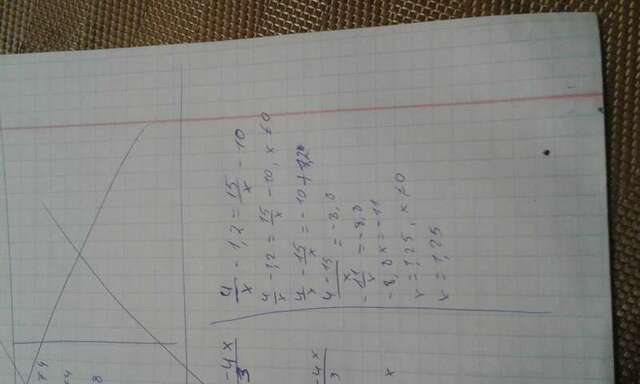 4/x - 1,2 = 15/x - 10
4/x - 1,2 = 15/x - 10, x ≠ 0
4/x - 15/x = -10 + 1,2
4 - 15/x = -8,8
- 11/x = -8,8
-8,8x = -11
x = 1,25, x ≠ 0
x = 1,25
-4x/3
-4x/3
x